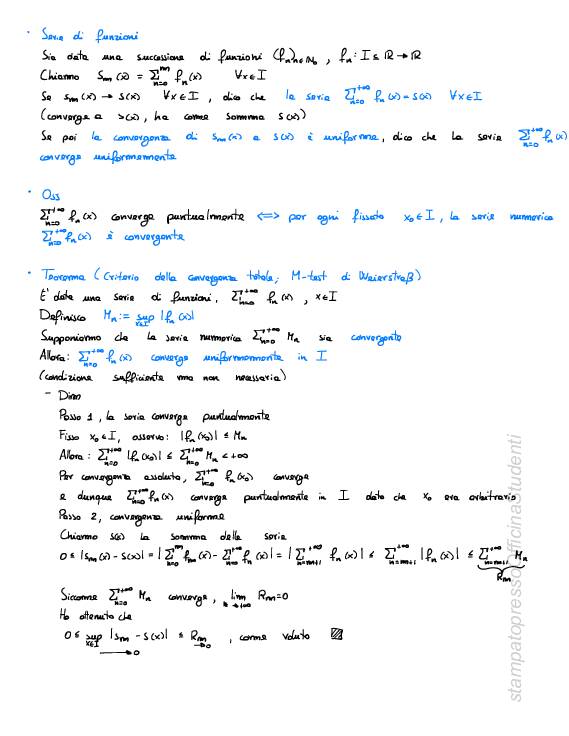 • Serie di funzioni
Sia data una successione di funzioni (fₙ)ₙ∈ℕ₀, fₙ: I ⊆ ℝ → ℝ
Chiamo Sₘ(x) = Σₙ₌₀ᵐ fₙ(x) ∀x∈I
Se sₘ(x) → s(x) ∀x∈I, dico che la serie Σₙ₌₀⁺∞ fₙ(x) = s(x) ∀x∈I
(converge a s(x), ha come somma s(x))
Se poi la convergenza di sₘ(x) a s(x) è uniforme, dico che la serie Σₙ₌₀⁺∞ fₙ(x)
converge uniformemente
• Oss
Σₙ₌₀⁺∞ fₙ(x) converge puntualmente <=> per ogni fissato x₀∈I, la serie numerica
Σₙ₌₀⁺∞ fₙ(x) è convergente
• Teorema (Criterio della convergenza totale; M-test di Weierstraß)
E' data una serie di funzioni, Σₙ₌₀⁺∞ fₙ(x), x∈I
Definisco Mₙ := sup x∈I |fₙ(x)|
Supponiamo che la serie numerica Σₙ₌₀⁺∞ Mₙ sia convergente
Allora: Σₙ₌₀⁺∞ fₙ(x) converge uniformemente in I
(condizione sufficiente ma non necessaria)
- Dim
Passo 1, la serie converge puntualmente
Fisso x₀∈I, osservo: |fₙ(x₀)| ≤ Mₙ
Allora: Σₙ₌₀⁺∞ |fₙ(x₀)| ≤ Σₙ₌₀⁺∞ Mₙ < +∞
Per convergenza assoluta, Σₙ₌₀⁺∞ fₙ(x₀) converge
e dunque Σₙ₌₀⁺∞ fₙ(x) converge puntualmente in I dato che x₀ era arbitrario
Passo 2, convergenza uniforme
Chiamo s(x) la somma della serie
0 ≤ |sₘ(x) - s(x)| = |Σₙ₌₀ᵐ fₘ(x) - Σₙ₌₀⁺∞ fₙ(x)| = |Σₙ₌ₘ₊₁⁺∞ fₙ(x)| ≤ Σₙ₌ₘ₊₁⁺∞ |fₙ(x)| ≤ Σₙ₌ₘ₊₁⁺∞ Mₙ
Rₘ
Siccome Σₙ₌₀⁺∞ Mₙ converge, lim →+∞ Rₘ = 0
Ho ottenuto che
0 ≤ sup x∈I |sₘ - s(x)| ≤ Rₘ, come voluto
→0 →0
stampatopressoofficinaStudenti